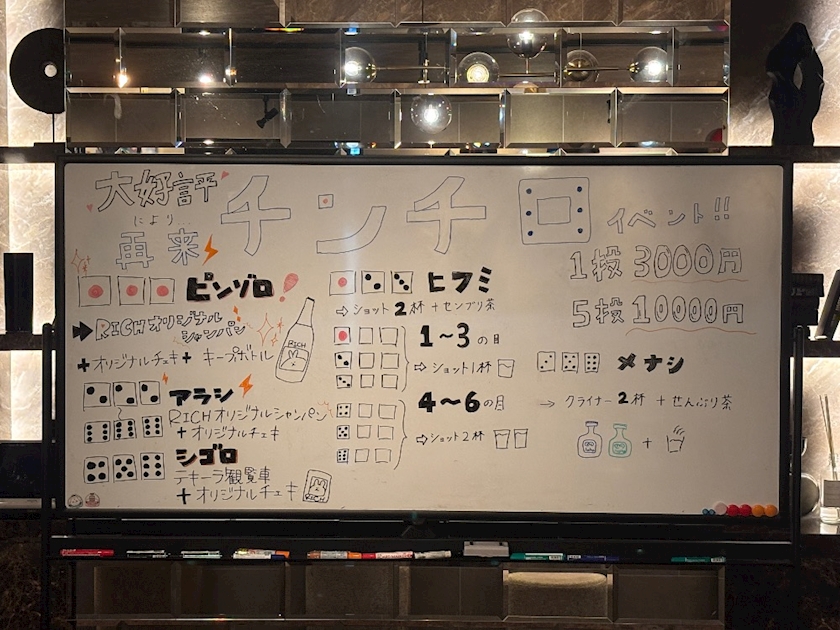 大好評
により...
再来
チンチロ
イベント!!
1投 3000円
5投 10000円
ピンゾロ!
RICHオリジナル
シャンパン
+オリジナルチェキ+ キープボトル
RICH
アラシ
RICHオリジナルシャンパン
+オリジナルチェキ
シゴロ
テキーラ観覧車
+オリジナルチェキ
RICH
ヒフミ
⇨ショット2杯+センブリ茶
1〜3の目
⇨ショット1杯
4〜6の目
⇨ショット2杯
メナシ
→ クライナー2杯 +せんぶり茶
+